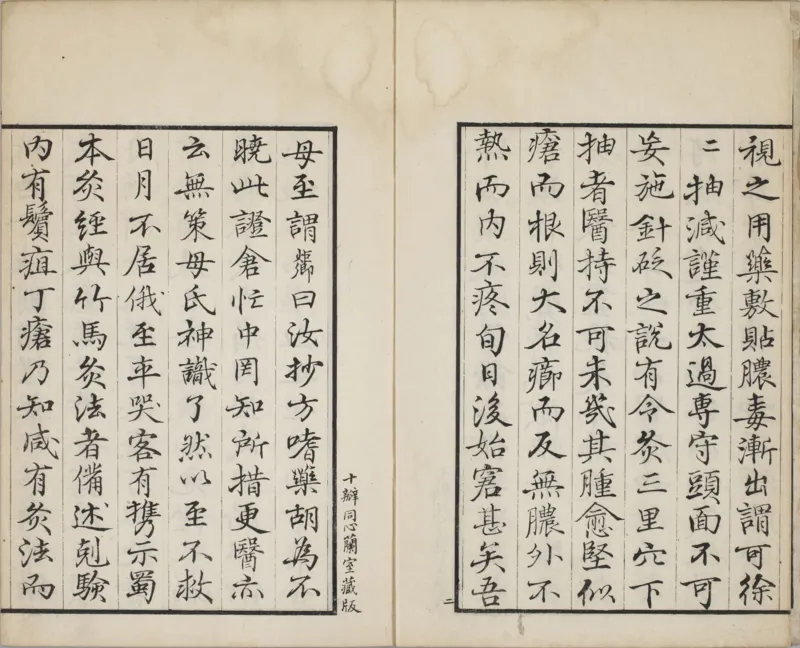 視之用藥敷貼膿毒漸出謂可徐
二抽減謹重太過專守頭面不可
妄施針砭之說有令灸三里穴下
抽者醫持不可未幾其腫愈堅似
瘡而根則大名癤而反無膿外不
熱而内不疼旬日後始窘甚矣吾
二
十瓣同心蘭室藏版
母至謂曰汝抄方嗜藥胡為不
曉此證倉忙中罔知所措更醫亦
云無策母氏神識了然以至不救
日月不居俄至卒哭客有携示蜀
本灸經與竹馬灸法者備述剋驗
内有鬢疽丁瘡乃知咸有灸法而